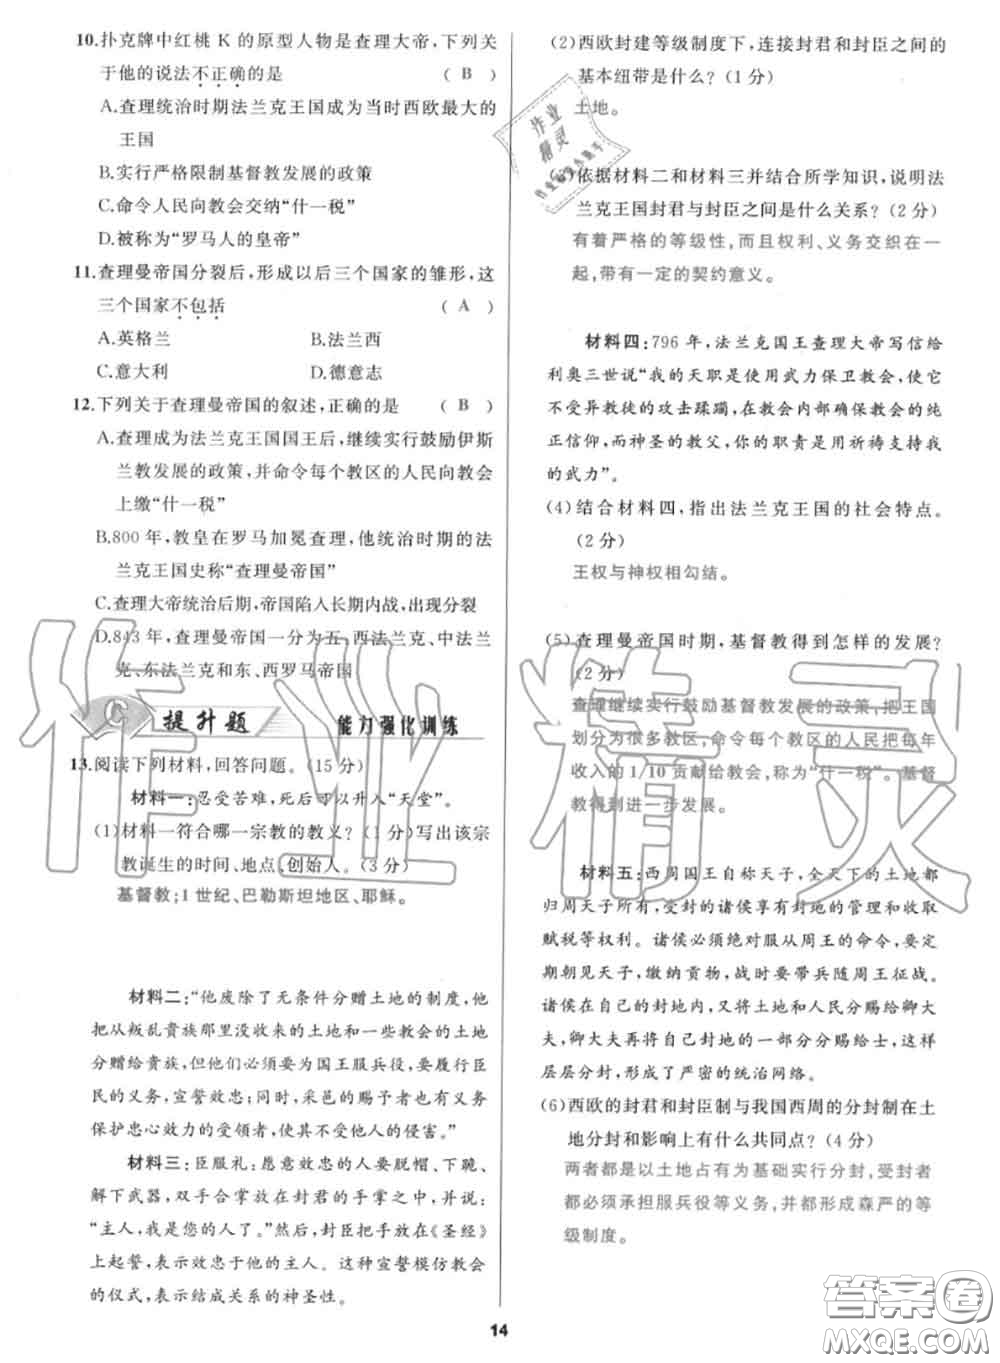 10.扑克牌中红桃 K 的原型人物是查理大帝,下列关
于他的说法不正确的是 ( B )
A.查理统治时期法兰克王国成为当时西欧最大的
王国
B.实行严格限制基督教发展的政策
C.命令人民向教会交纳“什一税”
D.被称为“罗马人的皇帝”
11.查理曼帝国分裂后,形成以后三个国家的雏形,这
三个国家不包括 ( A )
A.英格兰 B.法兰西
C.意大利 D.德意志
12.下列关于查理曼帝国的叙述,正确的是 ( B )
A.查理成为法兰克王国国王后,继续实行鼓励伊斯
兰教发展的政策,并命令每个教区的人民向教会
上缴“什一税”
B.800 年,教皇在罗马加冕查理,他统治时期的法
兰克王国史称“查理曼帝国”
C.查理大帝统治后期,帝国陷入长期内战,出现分裂
D.843 年,查理曼帝国一分为五:西法兰克、中法兰
克、东法兰克和东、西罗马帝国
C 提升题 能力强化训练
13.阅读下列材料,回答问题。(15 分)
材料一:忍受苦难,死后可以升入“天堂”。
(1)材料一符合哪一宗教的教义?(1 分)写出该宗
教诞生的时间、地点、创始人。(3 分)
基督教;1 世纪、巴勒斯坦地区、耶稣。
材料二:“他废除了无条件分赠土地的制度,他
把从叛乱贵族那里没收来的土地和一些教会的土地
分赠给贵族,但他们必须要为国王服兵役,履行臣
民的义务,宣誓效忠;同时,采邑的赐予者也有义务
保护忠心效力的受领者,使其不受他人的侵害。”
材料三:臣服礼:愿意效忠的人要脱帽、下跪、
解下武器,双手合掌放在封君的手掌之中,并说:
“主人,我是您的人了。”然后,封臣把手放在《圣经》
上起誓,表示效忠于他的主人。这种宣誓模仿教会
的仪式,表示结成关系的神圣性。
(2)西欧封建等级制度下,连接封君和封臣之间的
基本纽带是什么?(1 分)
土地。
(3)依据材料二和材料三并结合所学知识,说明法
兰克王国封君与封臣之间是什么关系?(2 分)
有着严格的等级性,而且权利、义务交织在一
起,带有一定的契约意义。
材料四:796 年,法兰克国王查理大帝写信给
利奥三世说“我的天职是使用武力保卫教会,使它
不受异教徒的攻击蹂躏,在教会内部确保教会的纯
正信仰,而神圣的教父,你的职责是用祈祷支持我
的武力”。
(4)结合材料四,指出法兰克王国的社会特点。
(2 分)
王权与神权相勾结。
(5)查理曼帝国时期,基督教得到怎样的发展?
(2 分)
查理继续实行鼓励基督教发展的政策,把王国
划分为很多教区,命令每个教区的人民把每年
收入的 1/10 贡献给教会,称为“什一税”。基督
教得到进一步发展。
材料五:西周国王自称天子,全天下的土地都
归周天子所有,受封的诸侯享有封地的管理和收取
赋税等权利。诸侯必须绝对服从周王的命令,要定
期朝见天子,缴纳贡物,战时要带兵随周王征战。
诸侯在自己的封地内,又将土地和人民分赐给卿大
夫,卿大夫再将自己封地的一部分分赐给士,这样
层层分封,形成了严密的统治网络。
(6)西欧的封君和封臣制与我国西周的分封制在土
地分封和影响上有什么共同点?(4 分)
两者都是以土地占有为基础实行分封,受封者
都必须承担服兵役等义务,并都形成森严的等
级制度。
14
作业精灵
作业精灵
答案圈
MXQE.COM